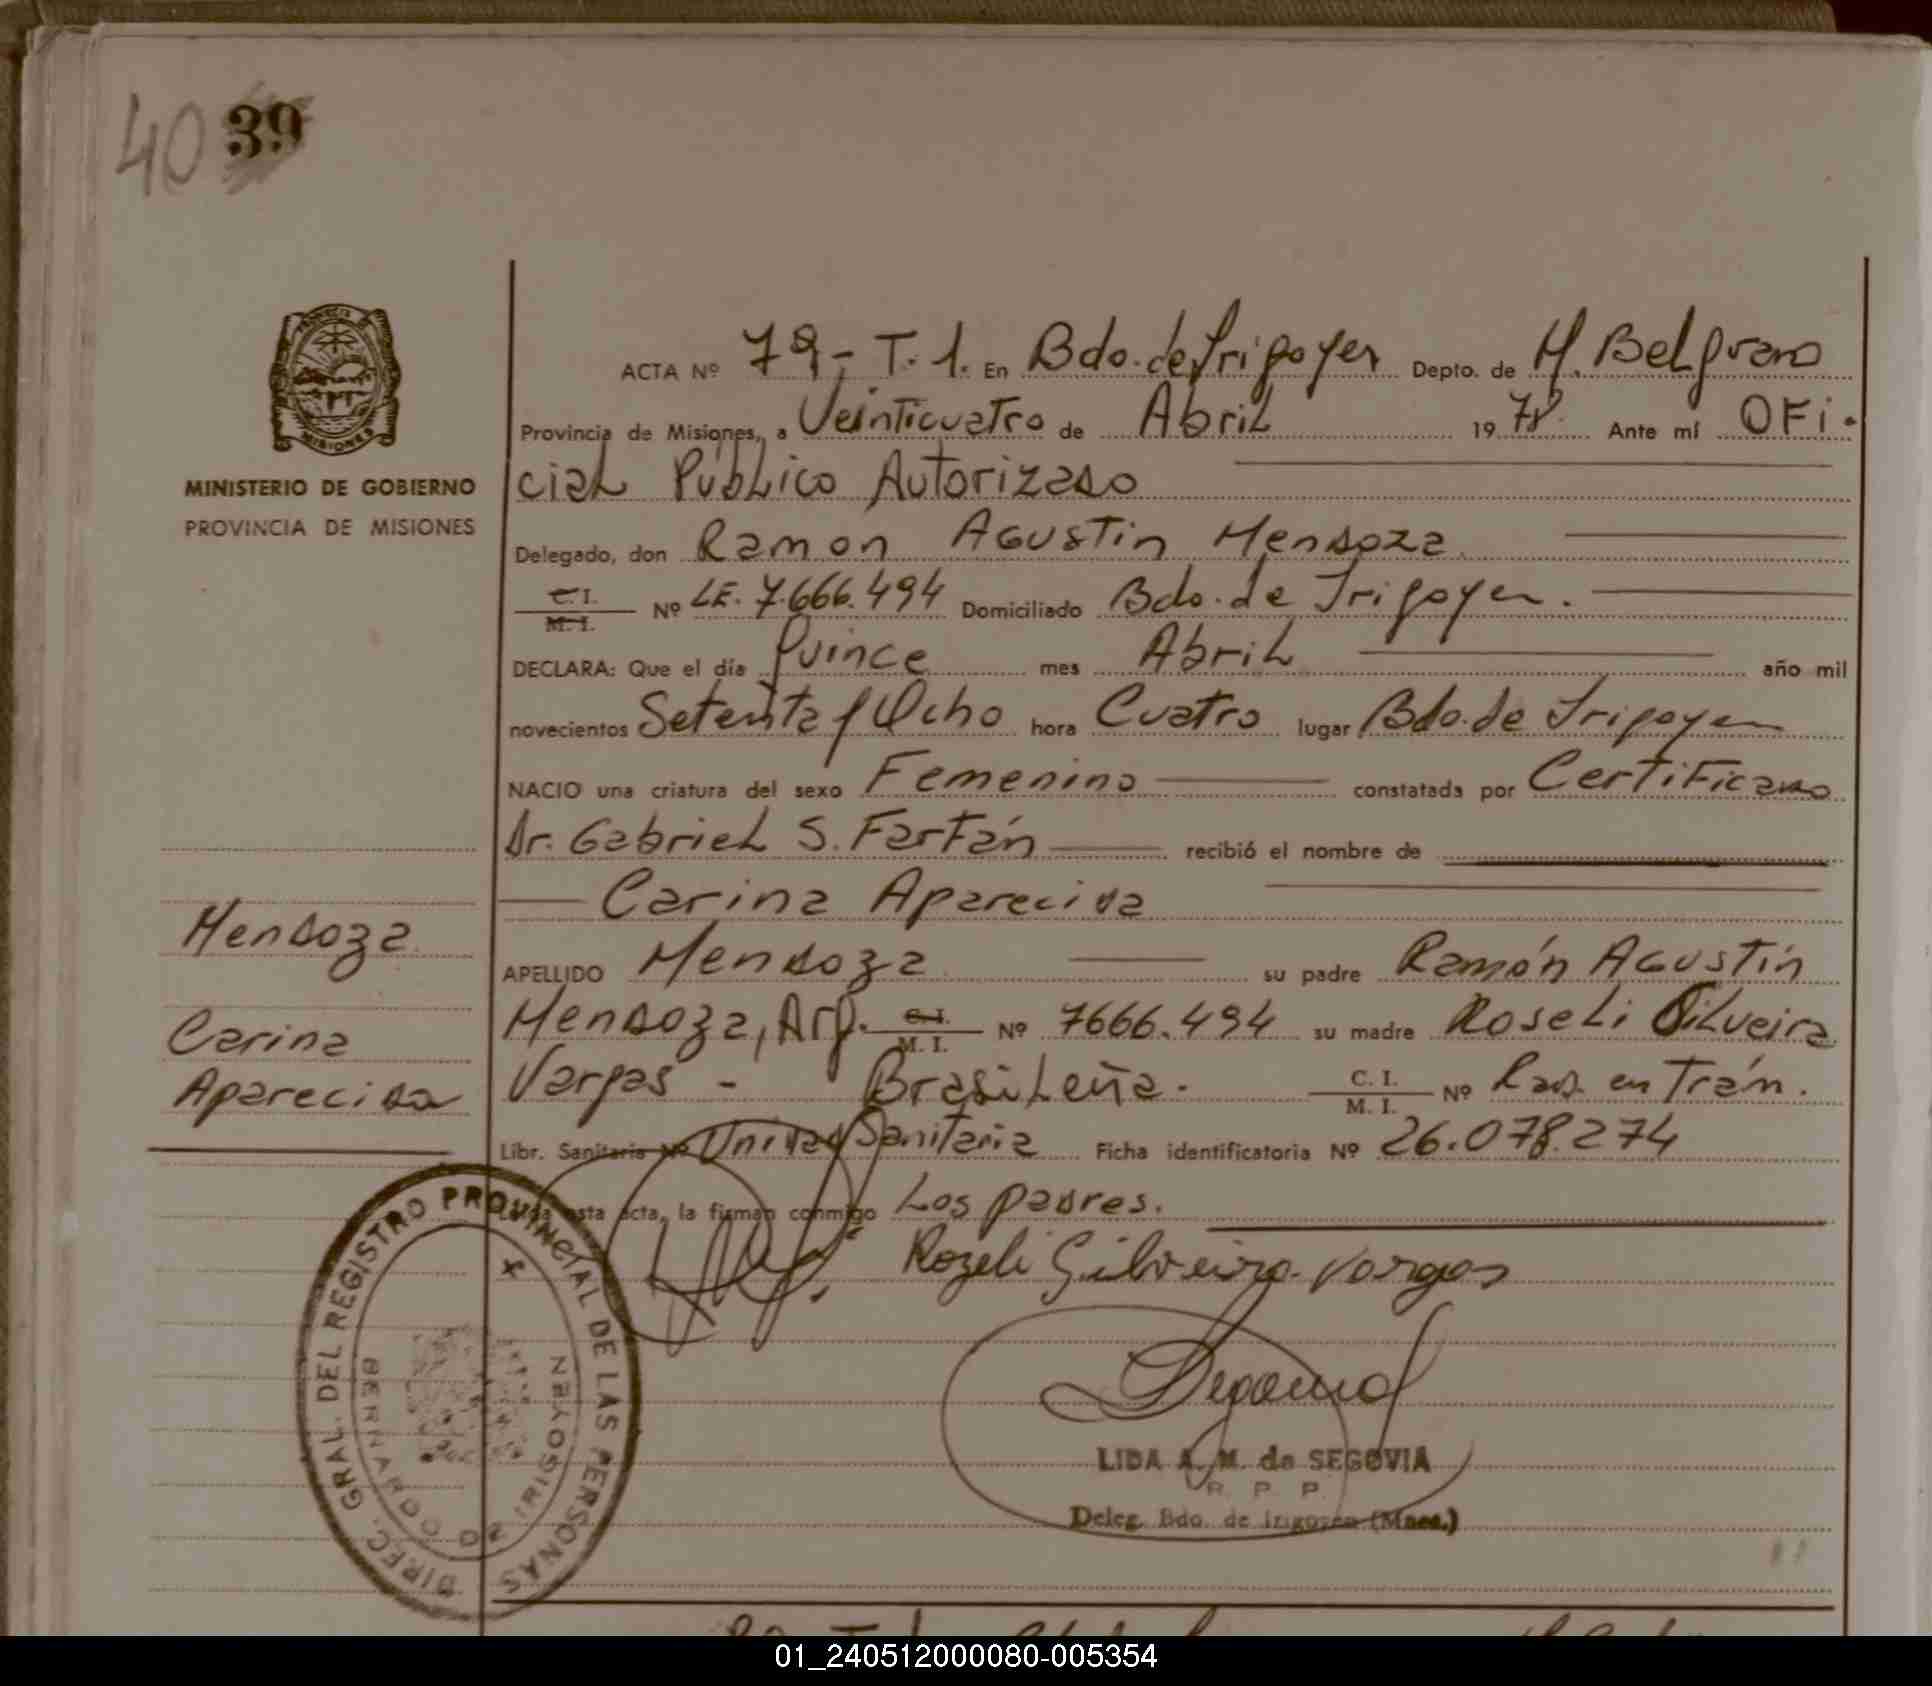 40 39
PROVINCIA DE
MISIONES
MINISTERIO DE GOBIERNO
PROVINCIA DE MISIONES
ACTA Nº 79 - T. 1. En Bdo. de Irigoyen Depto. de M. Belgrano
Provincia de Misiones, a Veinticuatro de Abril 1978. Ante mí OFi-
cial Público Autorizado
Delegado, don Ramon Agustin Mendoza
C.I. M. I. Nº LE. 7.666.494 Domiciliado Bdo. de Irigoyen.
DECLARA: Que el día Quince mes Abril año mil
novecientos Setenta y Ocho hora Cuatro lugar Bdo. de Irigoyen
NACIO una criatura del sexo Femenino constatada por Certificado
Dr. Gabriel S. Farfán recibió el nombre de
Carina Aparecida
APELLIDO Mendoza su padre Ramón Agustín
Mendoza, Arg. C.I. M. I. Nº 7666.494 su madre Roseli Silveira
Vargas - Brasileña. C. I. M. I. Nº Rad. en Trán.
Libr. Sanitaria Nº Unidad Sanitaria Ficha identificatoria Nº 26.078.274
Leída esta acta, la firman conmigo Los padres.
Mendoza
Carina
Aparecida
Rozeli Silveira Vargas
DIREC. GRAL. DEL REGISTRO PROVINCIAL DE LAS PERSONAS
BERNARDO DE IRIGOYEN
LIDA A. M. de SEGOVIA
R. P. P.
Deleg. Bdo. de Irigoyen (Mnes.)
01_240512000080-005354